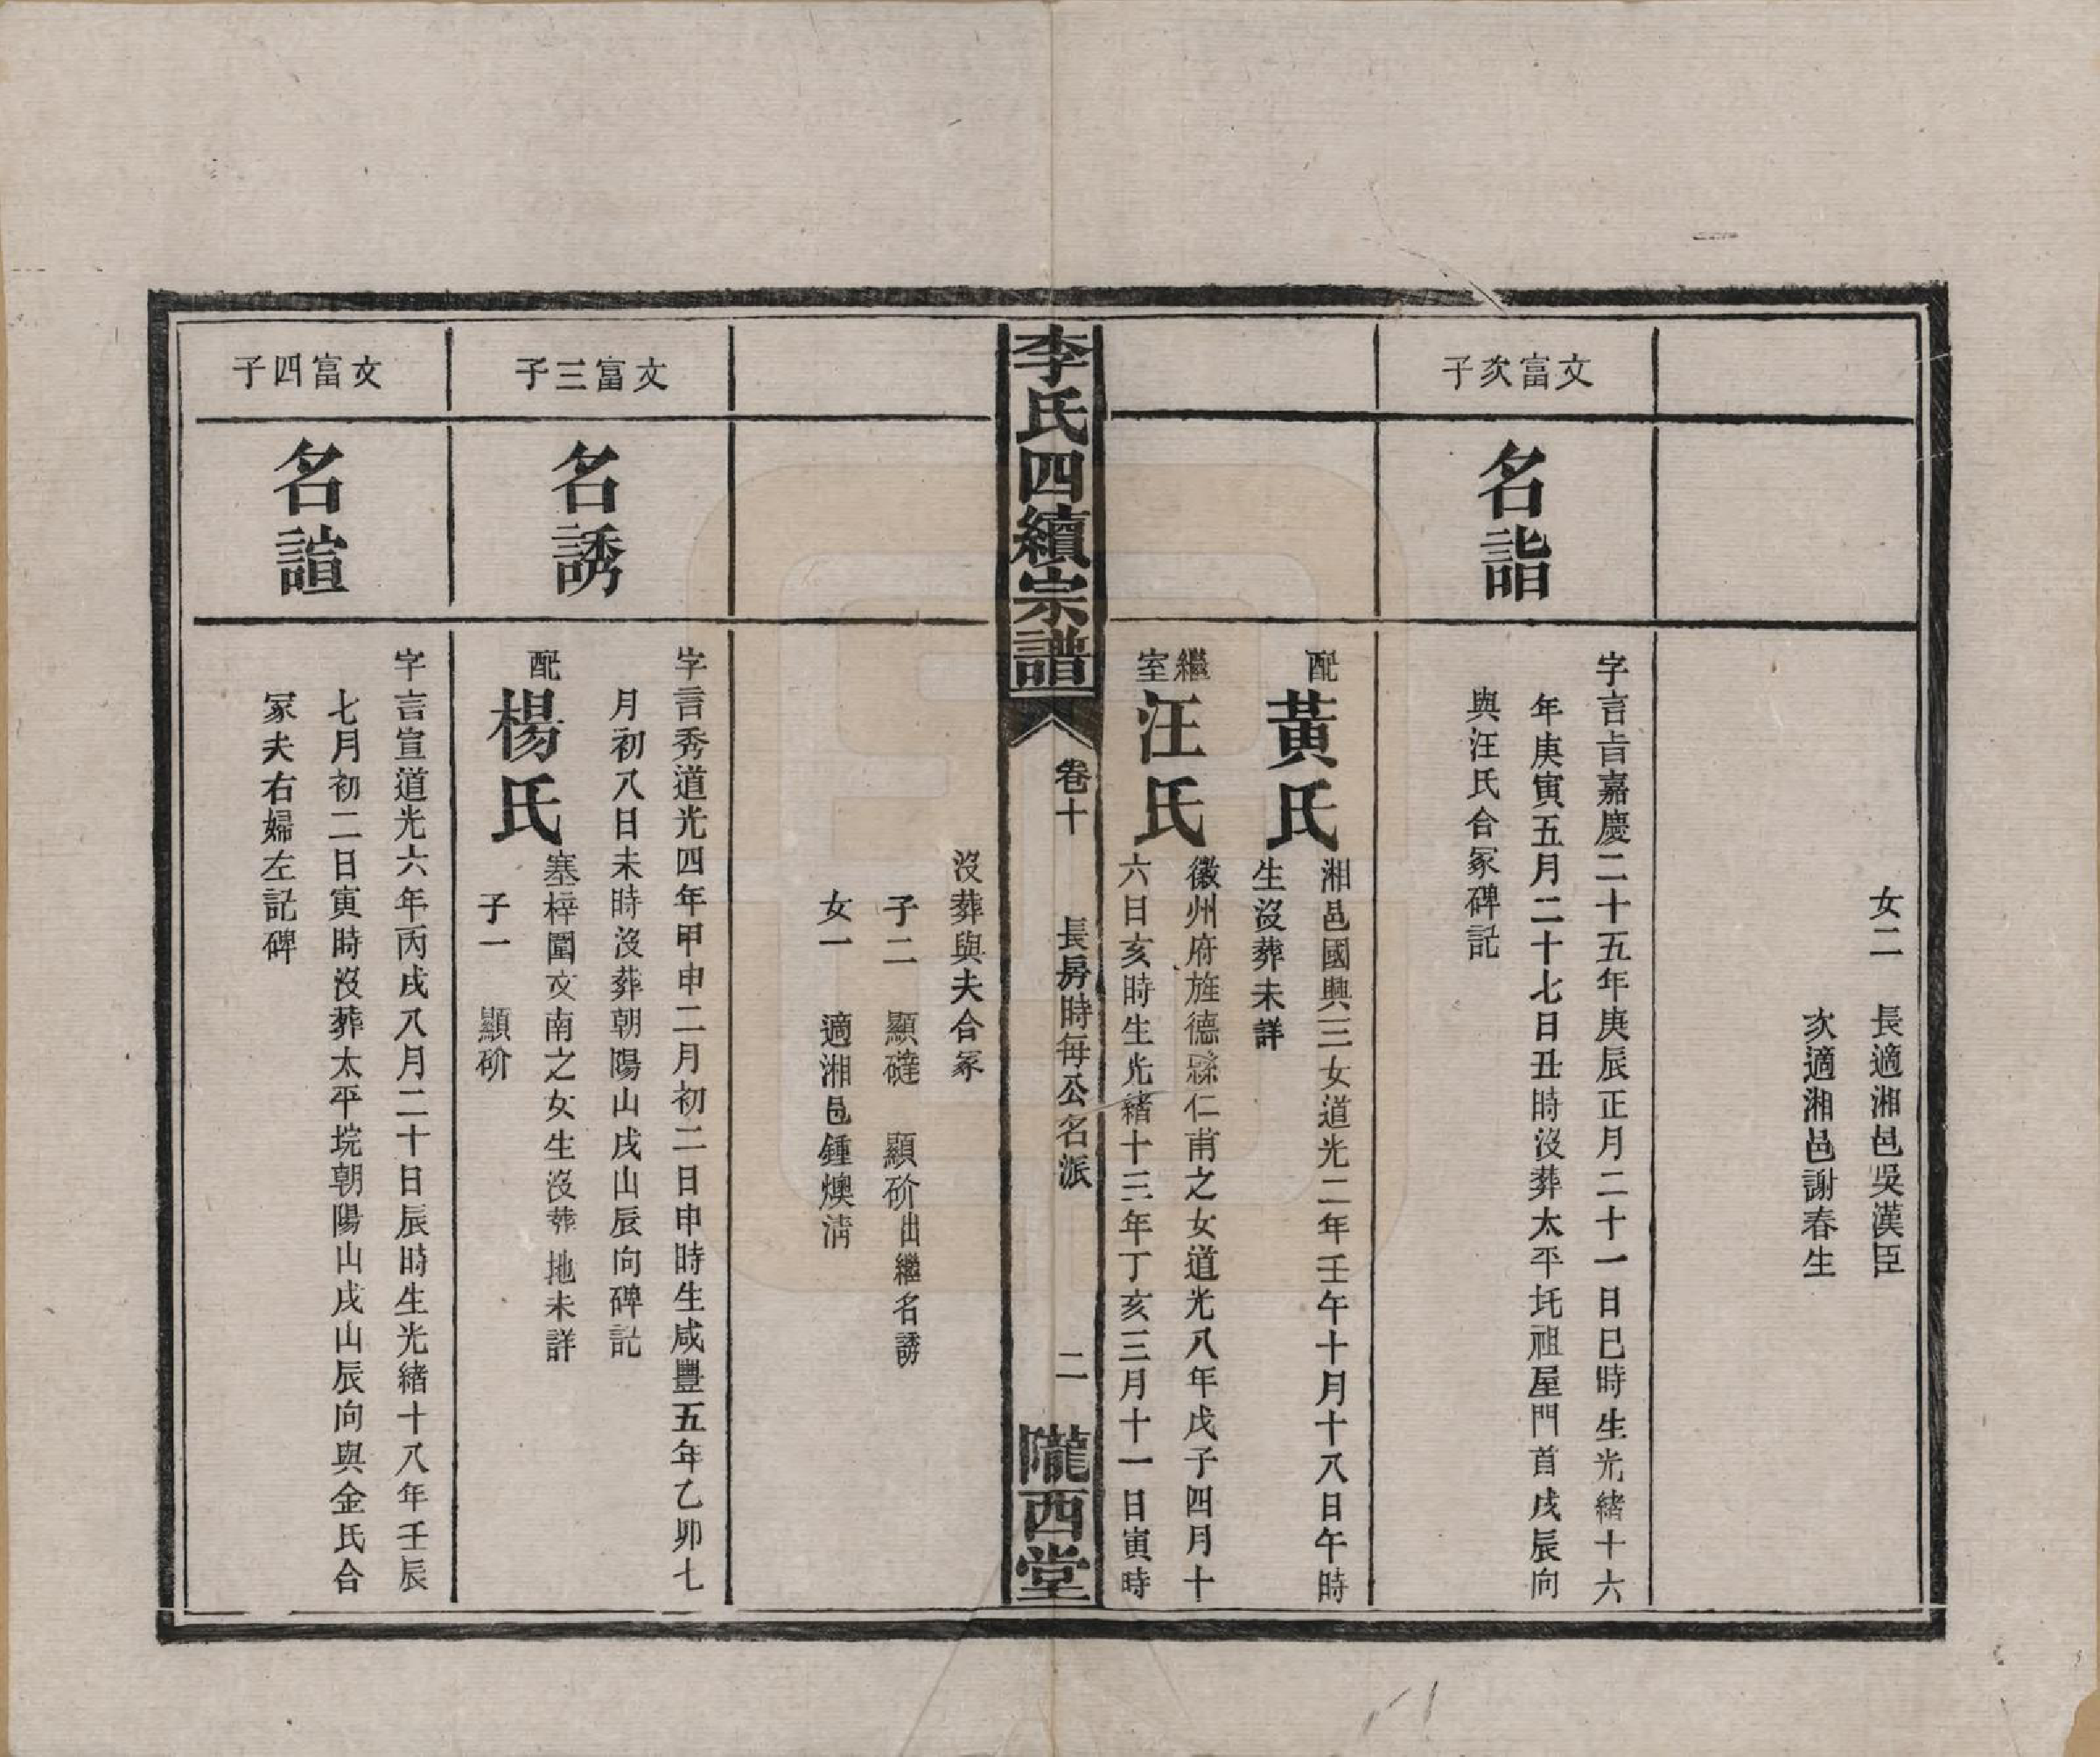 女二　長適湘邑吳漢臣
次適湘邑謝春生
文富次子
名詣
字言㫖嘉慶二十五年庚辰正月二十一日巳時生光緒十六
年庚寅五月二十七日丑時沒葬太平圫祖屋門首戌辰向
與汪氏合冢碑記
配
黃氏
湘邑國興三女道光二年壬午十月十八日午時
生沒葬未詳
繼室
汪氏
徽州府旌德縣仁甫之女道光八年戊子四月十
六日亥時生光緒十三年丁亥三月十一日寅時
李氏四續宗譜
卷十
長房時每公名派
二
隴西堂
沒葬與夫合冢
子二　顯磋　顯砎出繼名誘
女一　適湘邑鍾燠清
文富三子
名誘
字言秀道光四年甲申二月初二日申時生咸豐五年乙卯七
月初八日未時沒葬朝陽山戌山辰向碑記
配
楊氏
塞梓團文南之女生沒葬地未詳
子一　顯砎
文富四子
名諠
字言宣道光六年丙戌八月二十日辰時生光緒十八年壬辰
七月初二日寅時沒葬太平垸朝陽山戌山辰向與金氏合
冢夫右婦左記碑